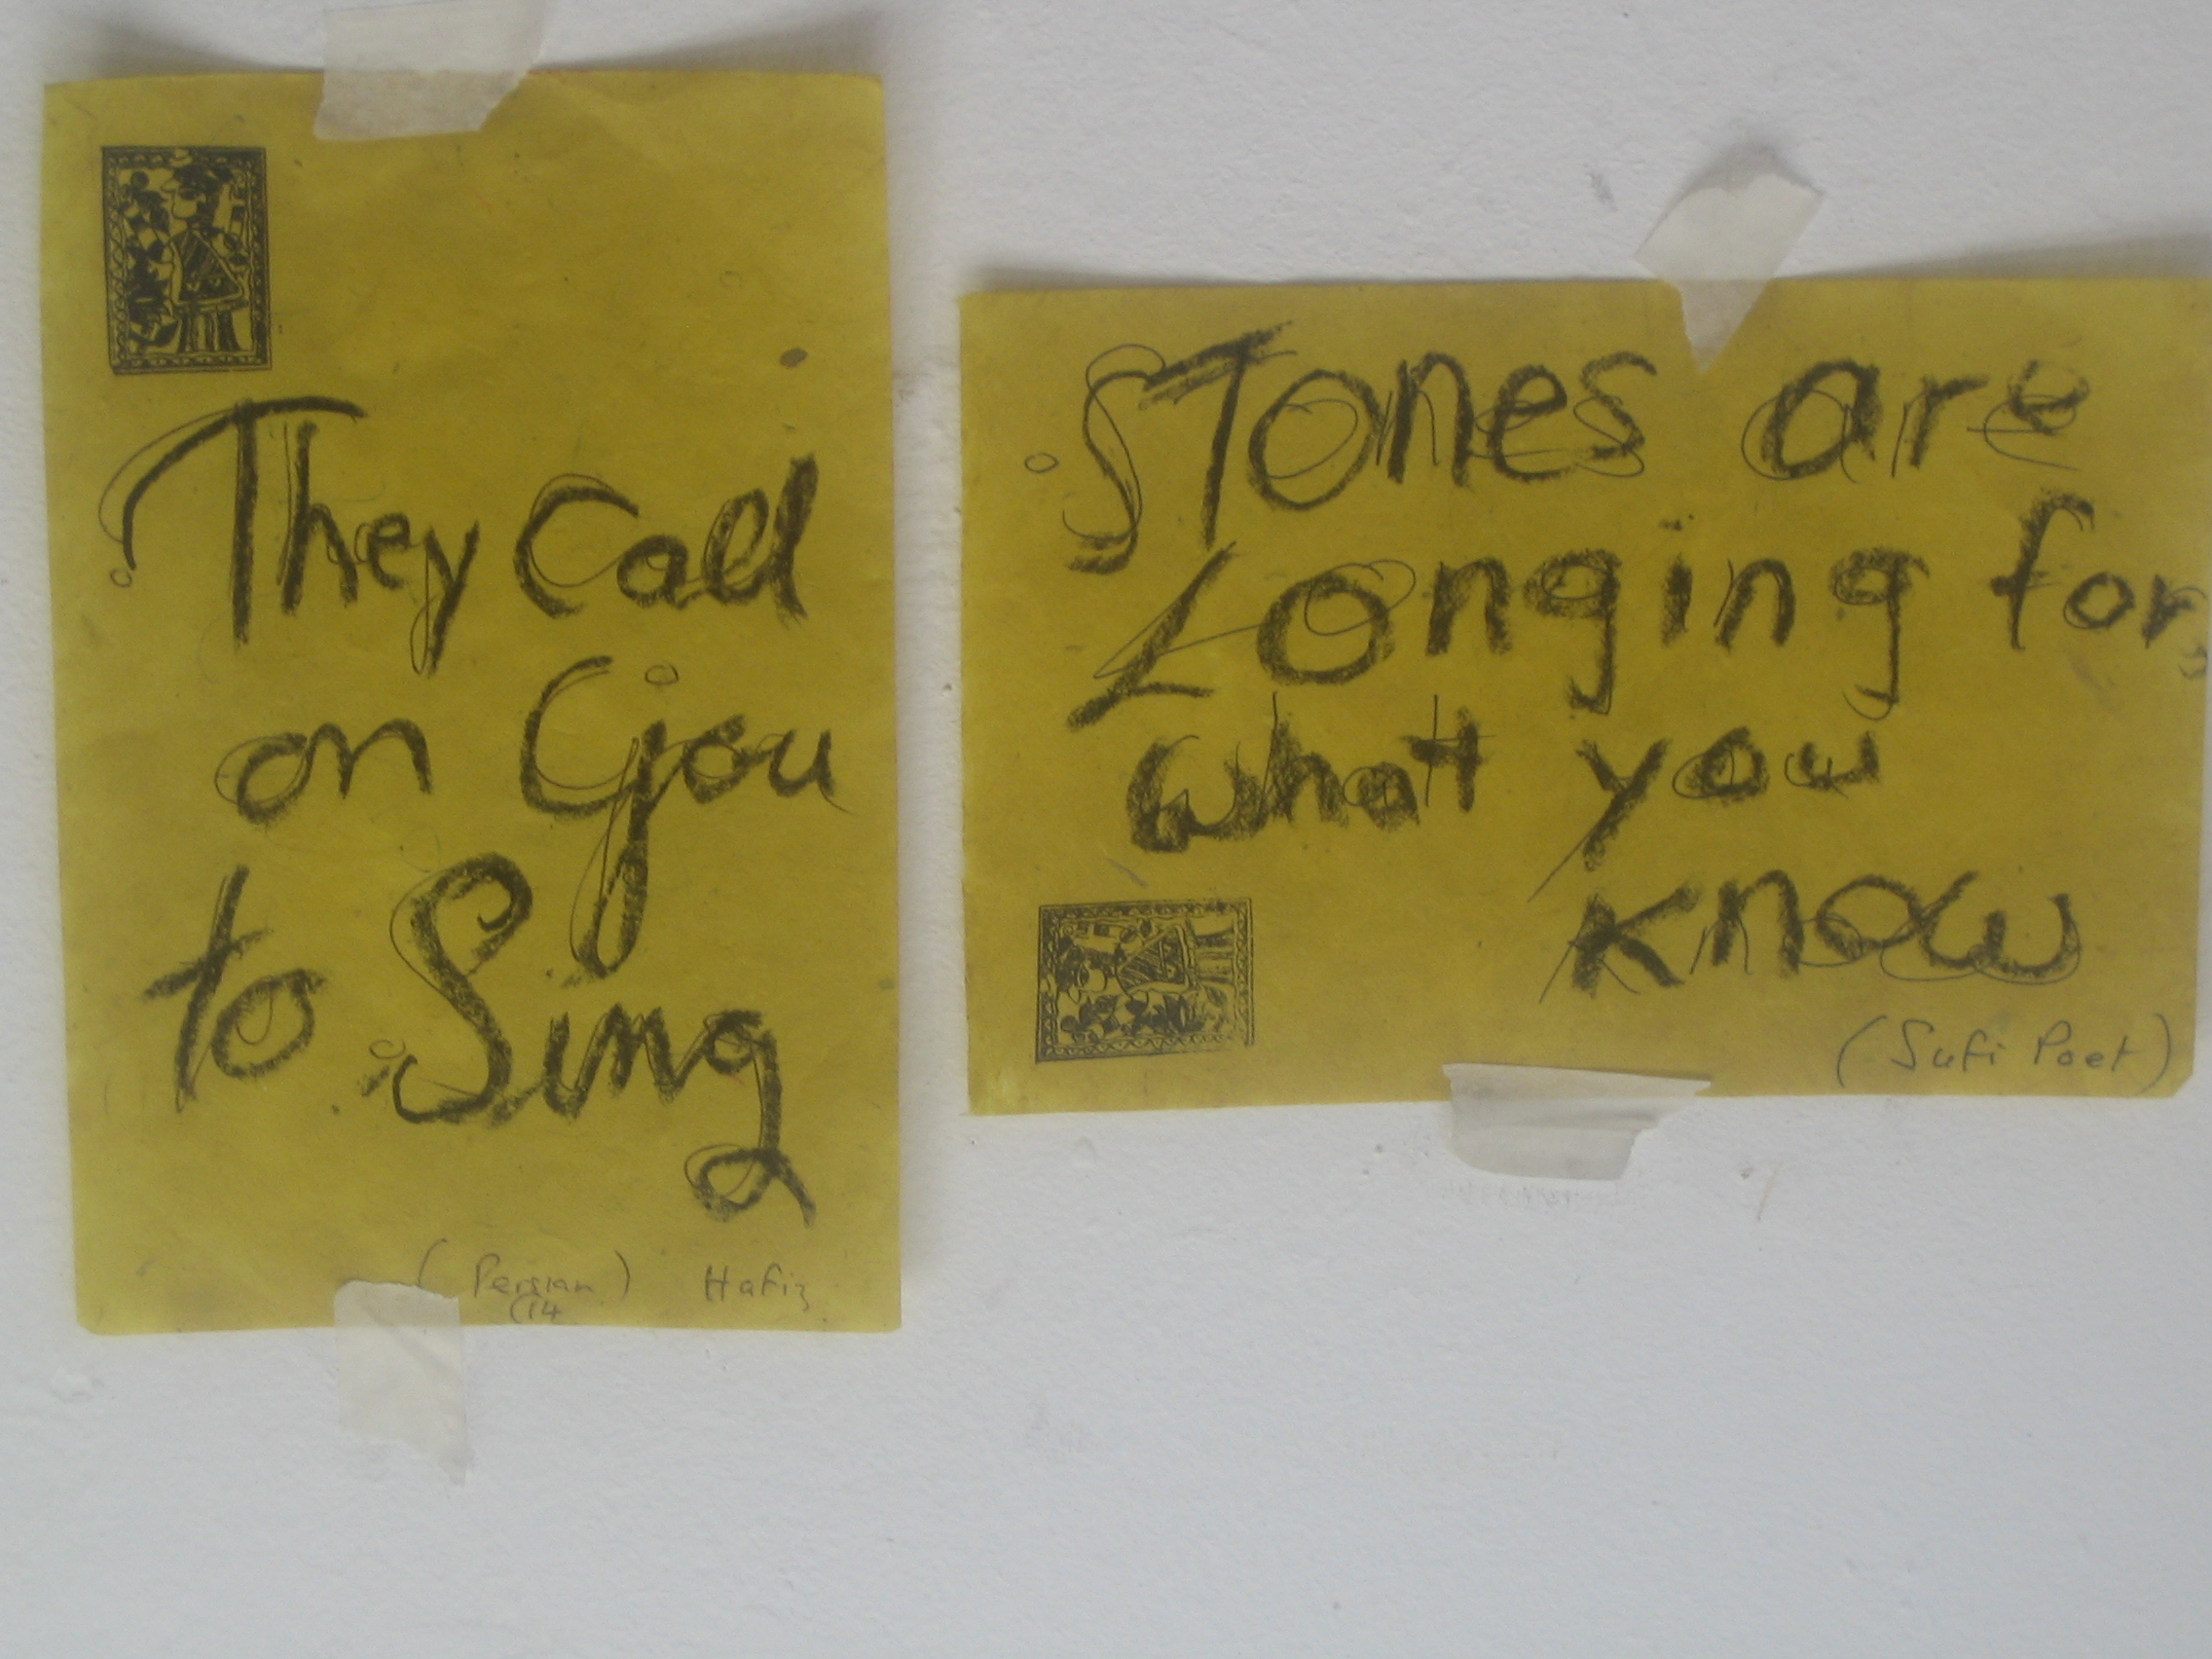 They call
on you
to Sing
(Persian) Hafiz
(14
STones are
Longing for
what you
know
(Sufi Poet)